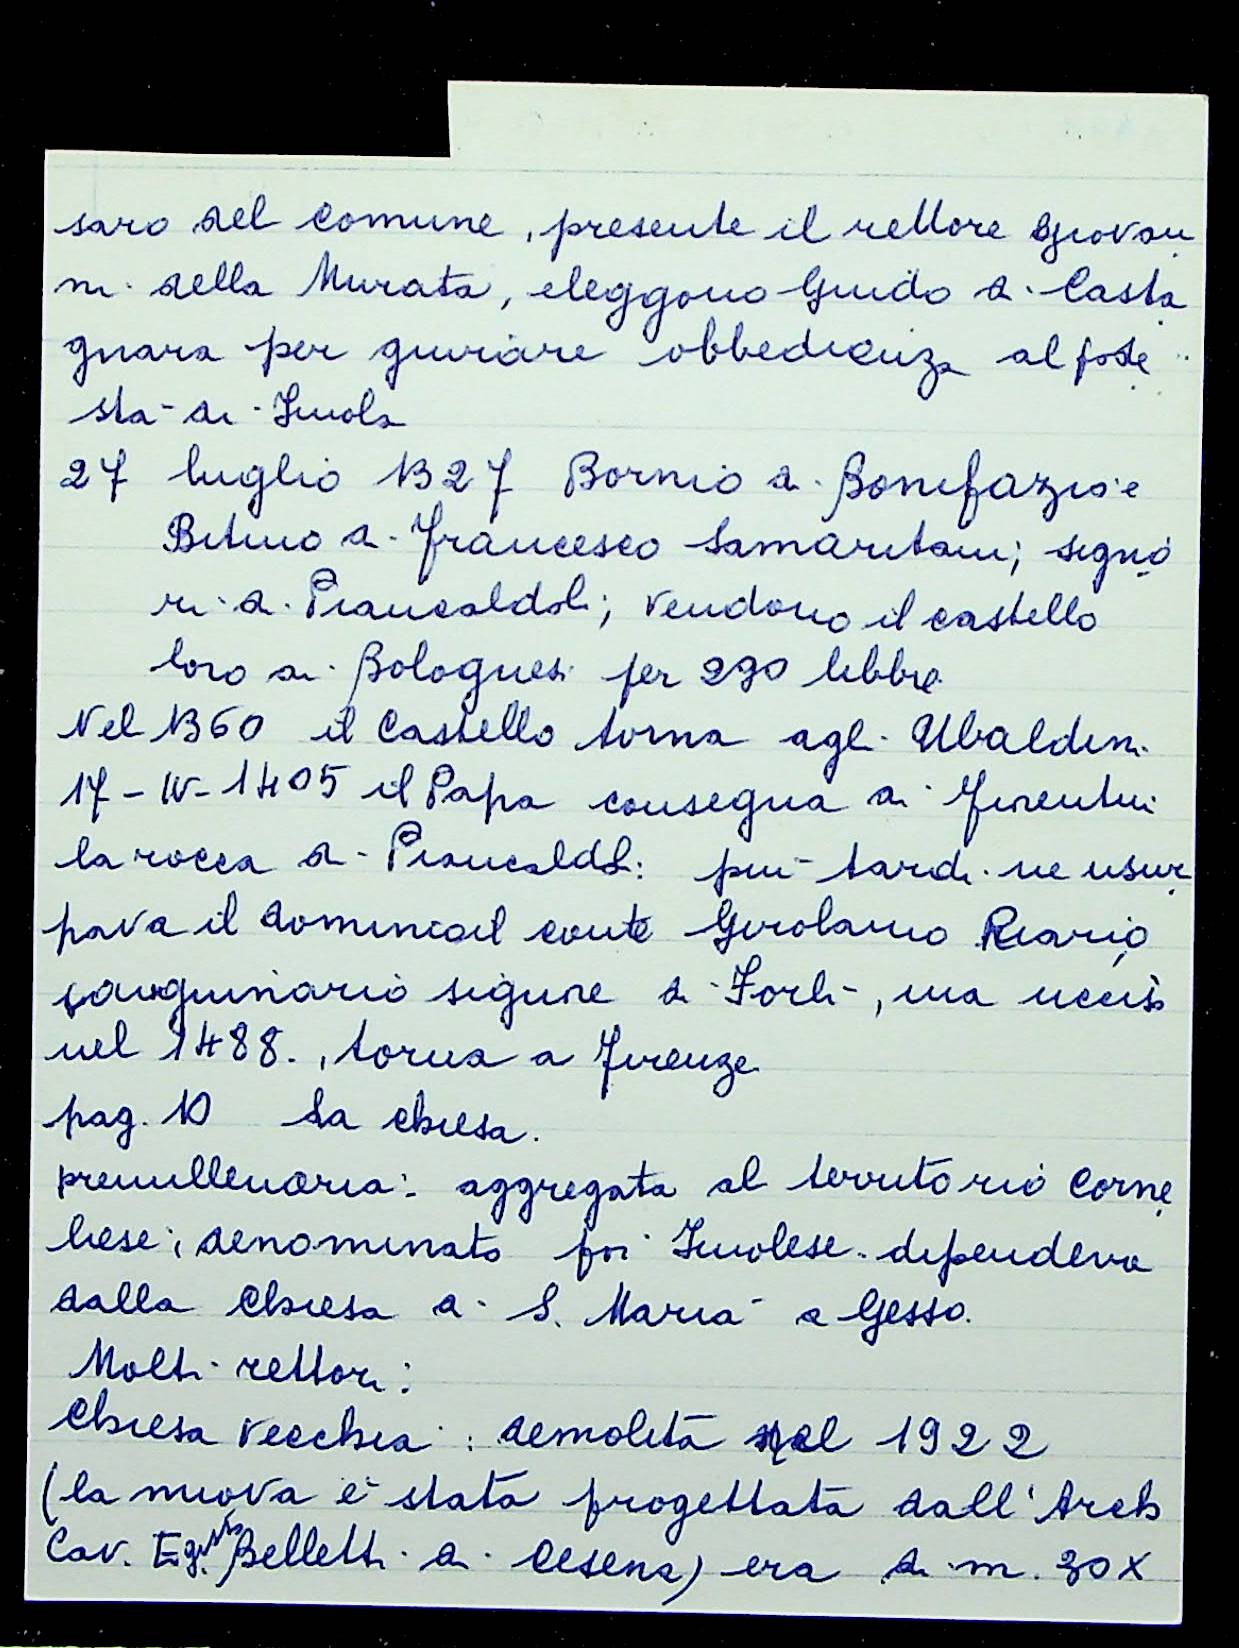 saro del comune, presente il rettore Giovan
ni della Murata, eleggono Guido di Casta
gnara per giurare obbedienza al pode
stà di Imola
27 luglio 1327 Bornio di Bonifazio e
Bitino di Francesco Samaritani, signo
ri di Piancaldoli, vendono il castello
loro ai Bolognesi per 290 libbre
Nel 1360 il Castello torna agli Ubaldini
17-IV-1405 il Papa consegna ai Fiorentini
la rocca di Piancaldoli: più tardi ne usur
pava il dominio il conte Girolamo Riario
sanguinario signore di Forlì, ma ucciso
nel 1488., torna a Firenze
pag. 10 La chiesa.
premillenaria: aggregata al territorio Corne
liese, denominato poi Imolese. dipendeva
dalla Chiesa di S. Maria a Gesso.
Molti rettori:
Chiesa vecchia: demolita nel 1922
(la nuova è stata progettata dall'Arch
Cav. Eg. Belletti di Cesena) era di m. 30x